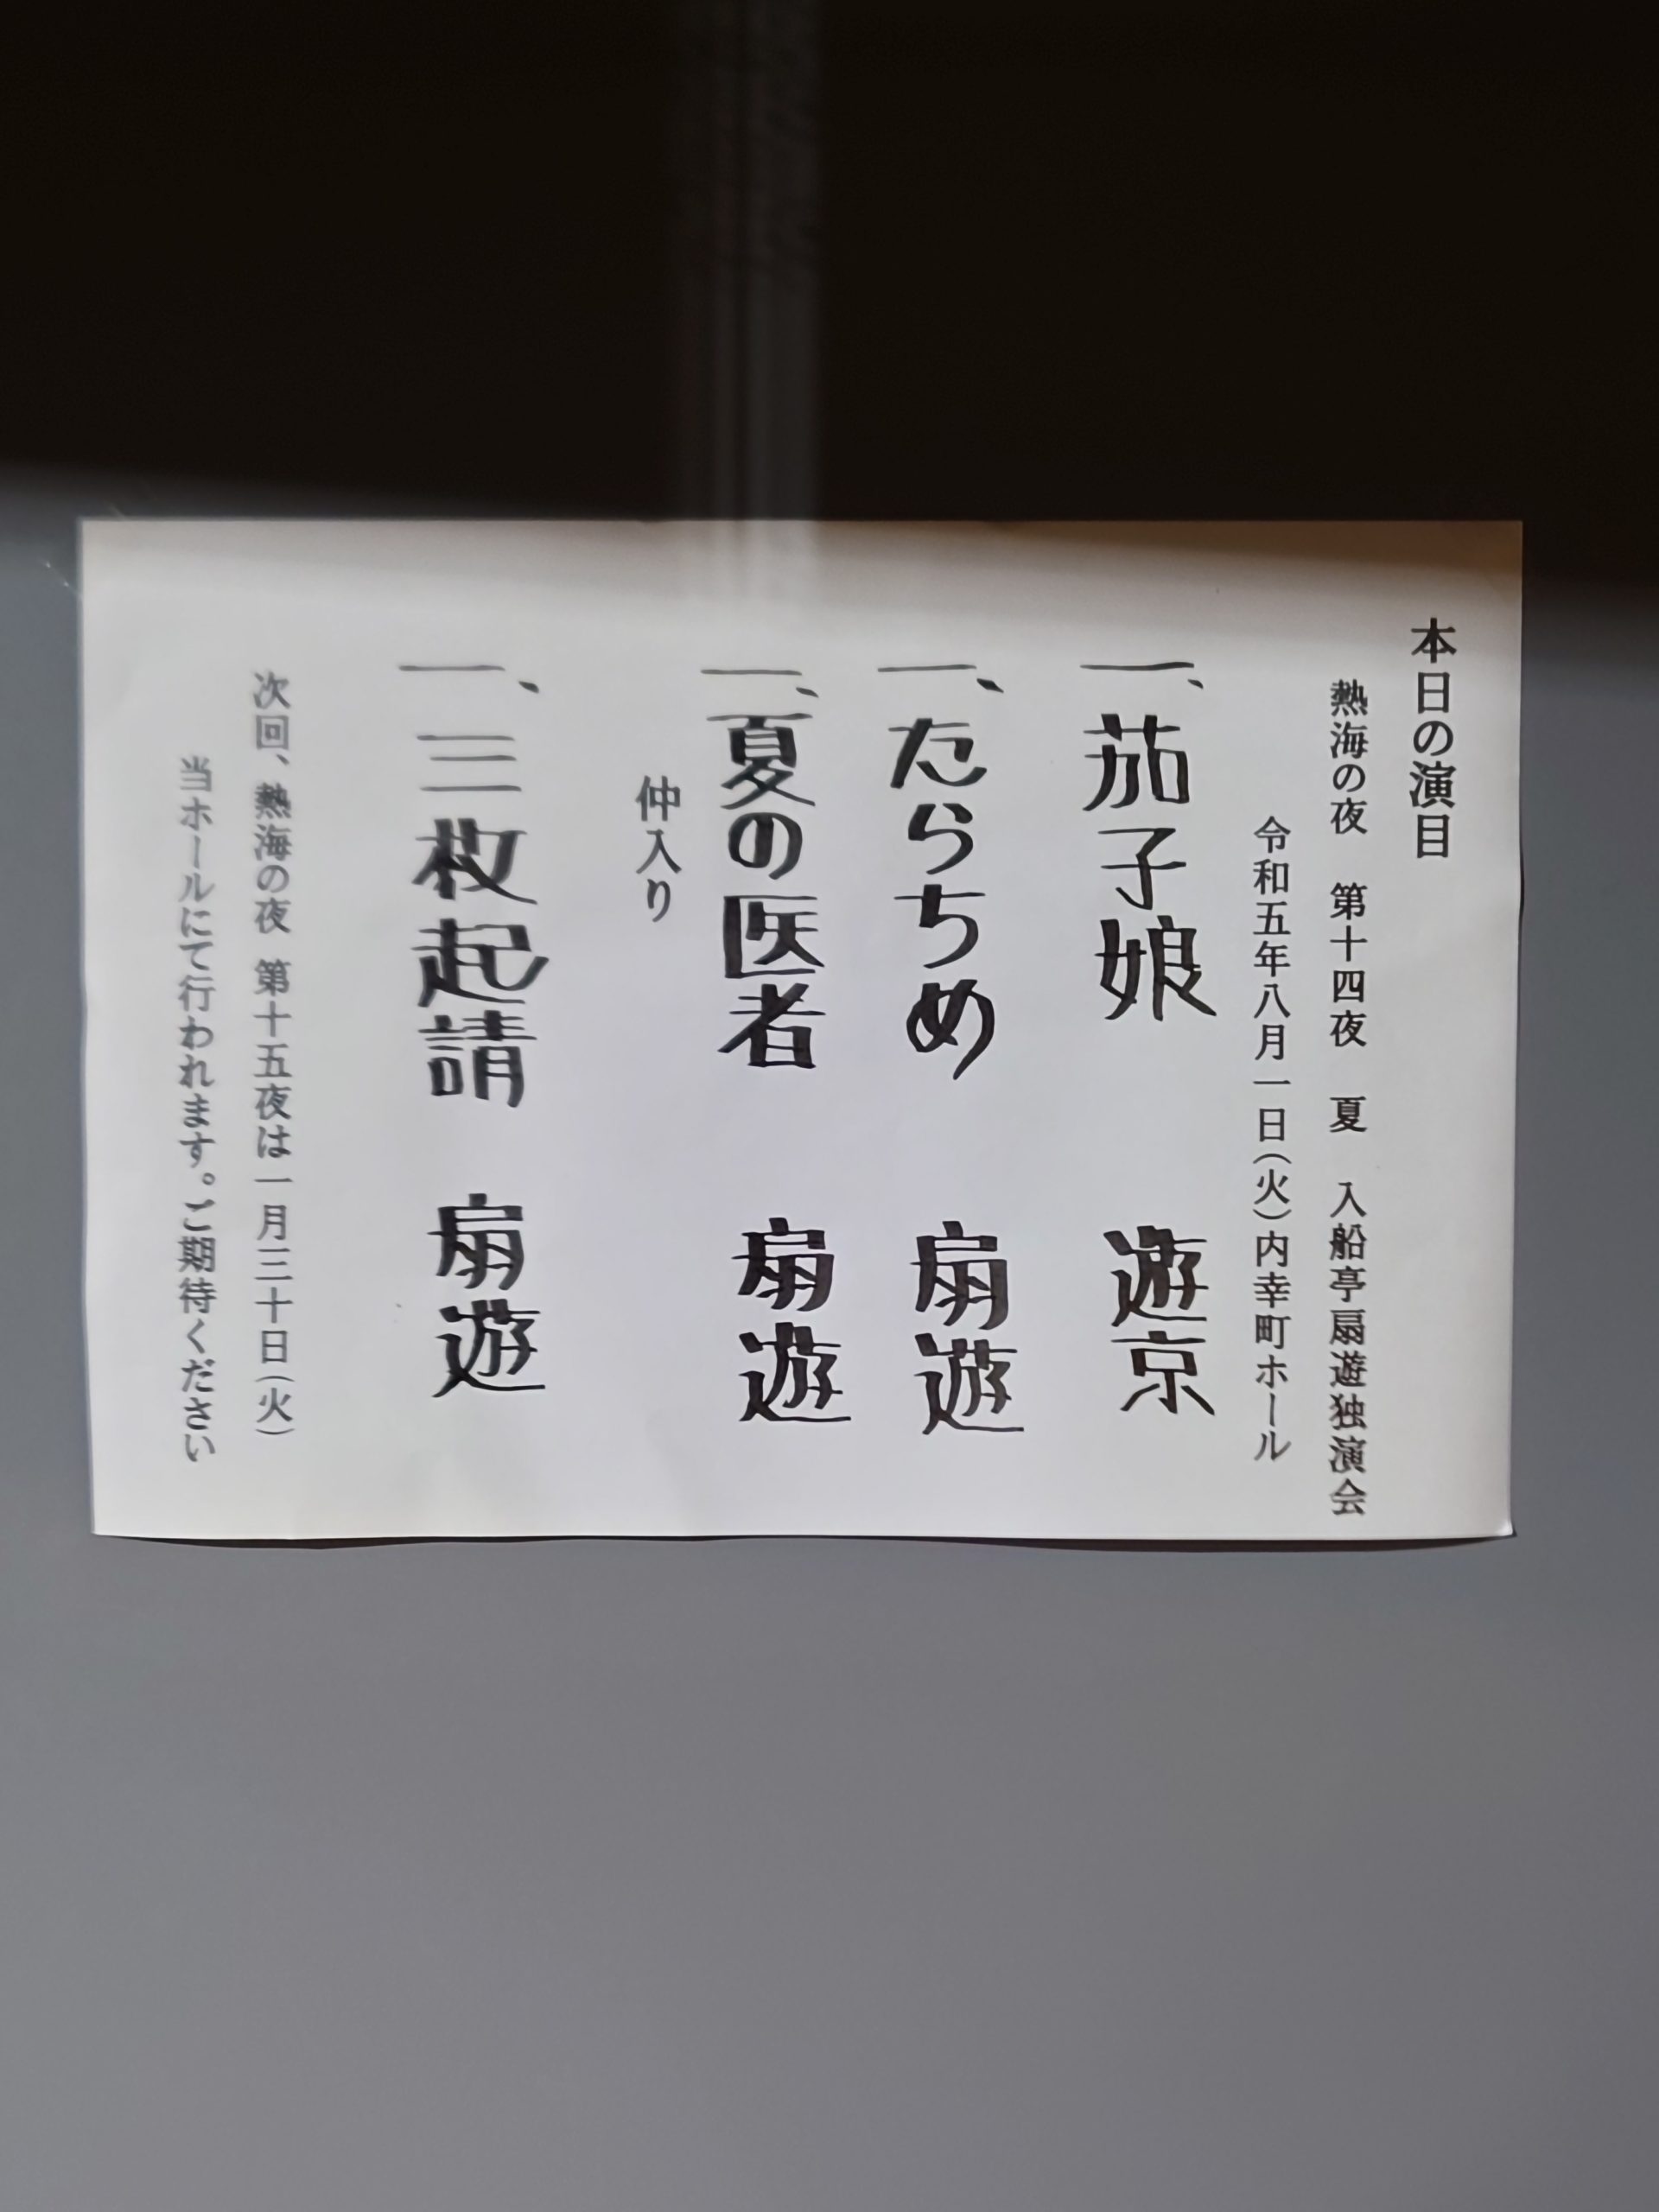 本日の演目
熱海の夜 第十四夜 夏 入船亭扇遊独演会
令和五年八月一日(火)内幸町ホール
一、茄子娘 遊京
一、たらちめ 扇遊
一、夏の医者 扇遊
仲入り
一、三枚起請 扇遊
次回、熱海の夜 第十五夜は一月三十日(火)
当ホールにて行われます。ご期待ください